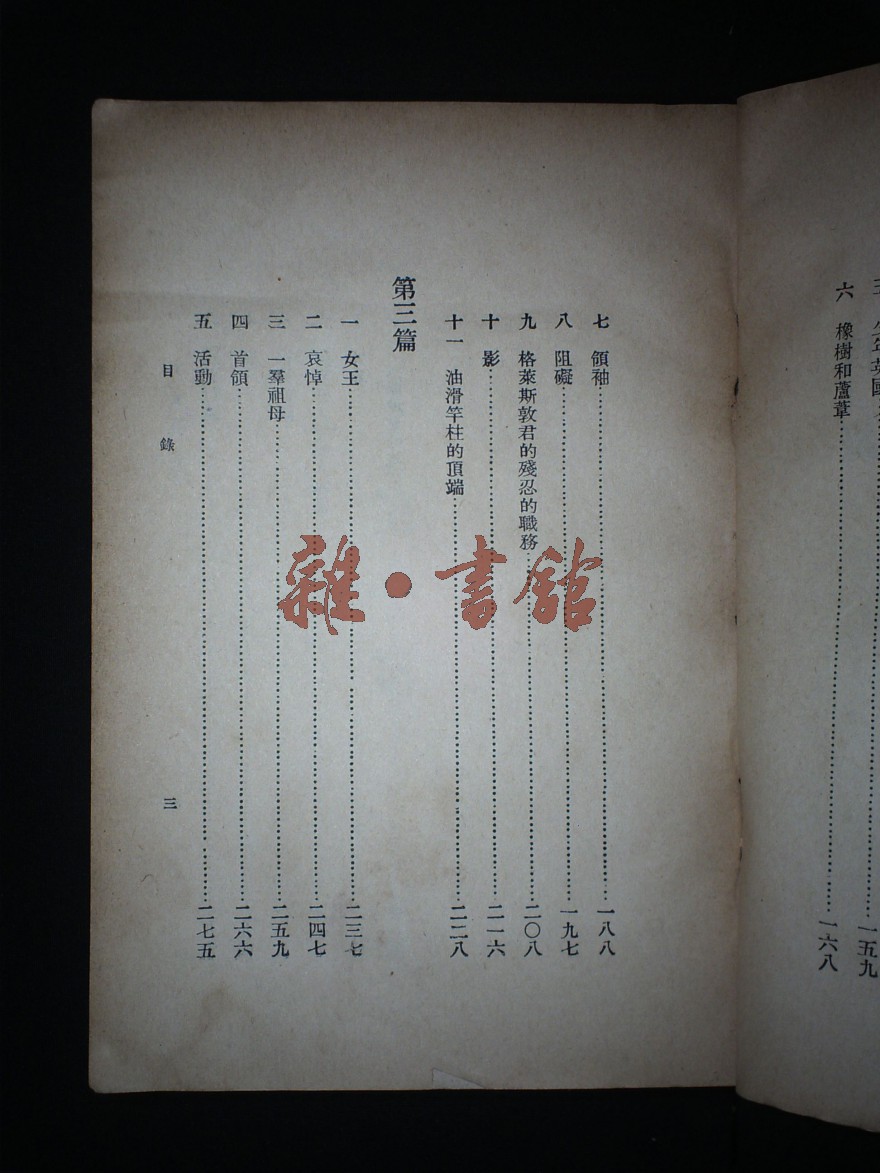 一五九
六 橡樹和蘆葦……一六八
七 領袖……一八八
八 阻礙……一九七
九 格萊斯敦君的殘忍的職務……二〇八
十 影……二一六
十一 油滑竿柱的頂端……二二八
第三篇
一 女王……二三七
二 哀悼……二四七
三 一羣祖母……二五九
四 首領……二六六
五 活動……二七五
目錄
三
雜·書館